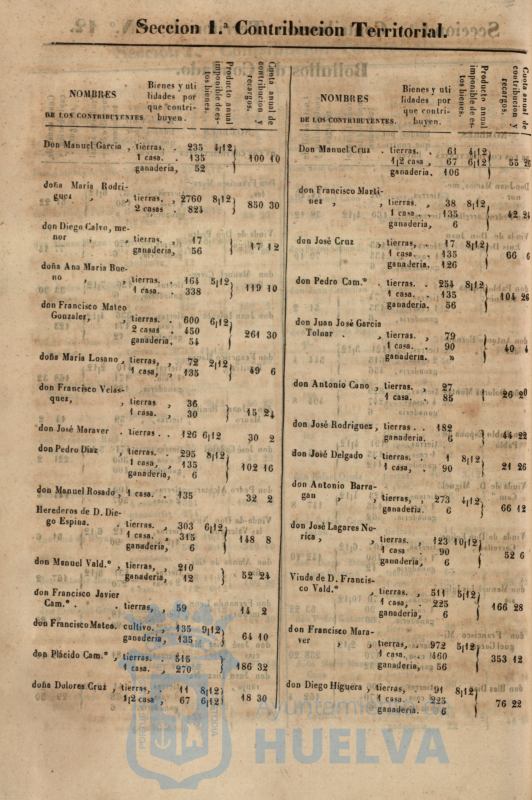 Seccion 1.ª Contribucion Territorial.
NOMBRES
DE LOS CONTRIBUYENTES.
Bienes y uti
lidades por
que contri-
buyen.
Producto anual
imponible de es-
tos bienes.
Cuota anual de
contribucion y
recargos.
Don Manuel Garcia , tierras. . 235 4|12
1 casa. . 135 100 10
ganaderia, 52
doña Maria Rodri-
guez , , tierras. , 2760 8|12 850 30
2 casas . 824
don Diego Calvo, me-
nor , tierras. , 17 17 12
ganaderia, 56
doña Ana Maria Bue-
no , , tierras. . 164 5|12 119 10
1 casa. . 338
don Francisco Mateo
Gonzalez, , tierras. . 600 6|12
2 casas . 450 261 30
ganaderia. 54
doña Maria Losano , tierras, , 72 2|12 49 6
1 casa, , 135
don Francisco Velas-
quez, , tierras , 36 15 24
1 casa. , 30
don José Maraver . tierras . . 126 6|12 30 2
don Pedro Diaz , tierras. . 295 8|12
1 casa, , 135 102 16
ganaderia, 6
don Manuel Rosado , 1 casa. . 135 32 2
Herederos de D. Die-
go Espina. . tierras. , 303 6|12
1 casa, , 315 148 8
ganaderia, 6
don Manuel Vald.º , tierras, , 210 52 24
ganaderia, 12
don Francisco Javier
Cam.º . . tierras, , 59 14 2
don Francisco Mateo. cultivo. , 135 9|12 64 10
ganaderia, 135
don Plácido Cam.º , tierras. . 515 186 32
1 casa. , 270
doña Dolores Cruz , tierras, , 11 8|12 18 30
1|2 casa , 67 6|12
NOMBRES
DE LOS CONTRIBUYENTES.
Bienes y uti
lidades por
que contri-
buyen.
Producto anual
imponible de es-
tos bienes.
Cuota anual de
contribucion y
recargos.
Don Manuel Cruz . tierras. . 61 4|12
1|2 casa , 67 6|12 55
ganaderia. 106
don Francisco Marti-
nez , , tierras. , 38 8|12
1 casa . , 135 42
ganaderia, 6
don José Cruz , tierras, . 17 8|12
1 casa. . 135 66 6
ganaderia. 126
don Pedro Cam.º . tierras. . 254 8|12
1 casa. . 135 104
ganaderia. 56
don Juan José Garcia
Tolnar . , tierras. , 79
1 casa. . 90 40 4
ganaderia. »
don Antonio Cano , tierras. , 27 26
1 casa. . 85
don José Rodriguez , tierras . . 182 44 22
ganaderia. 6
don José Delgado . tierras. . 1 8|12 21 26
1 casa, . 90
don Antonio Barra-
gan , , tierras, , 273 4|12 66 12
ganaderia. 6
don José Lagares No-
rica , , tierras. . 123 10|12
1 casa . 90 52 6
ganaderia. 6
Viuda de D. Francis-
co Vald.º , tierras. , 511 5|12
1 casa, . 225 166 28
ganaderia. 6
don Francisco Mara-
ver , , tierras, , 972 5|12
1 casa. , 460 353 12
ganaderia, 56
don Diego Higuera , tierras, , 91 8|12
1 casa. . 225 76 22
ganaderia. 6
Ayuntamiento de
HUELVA